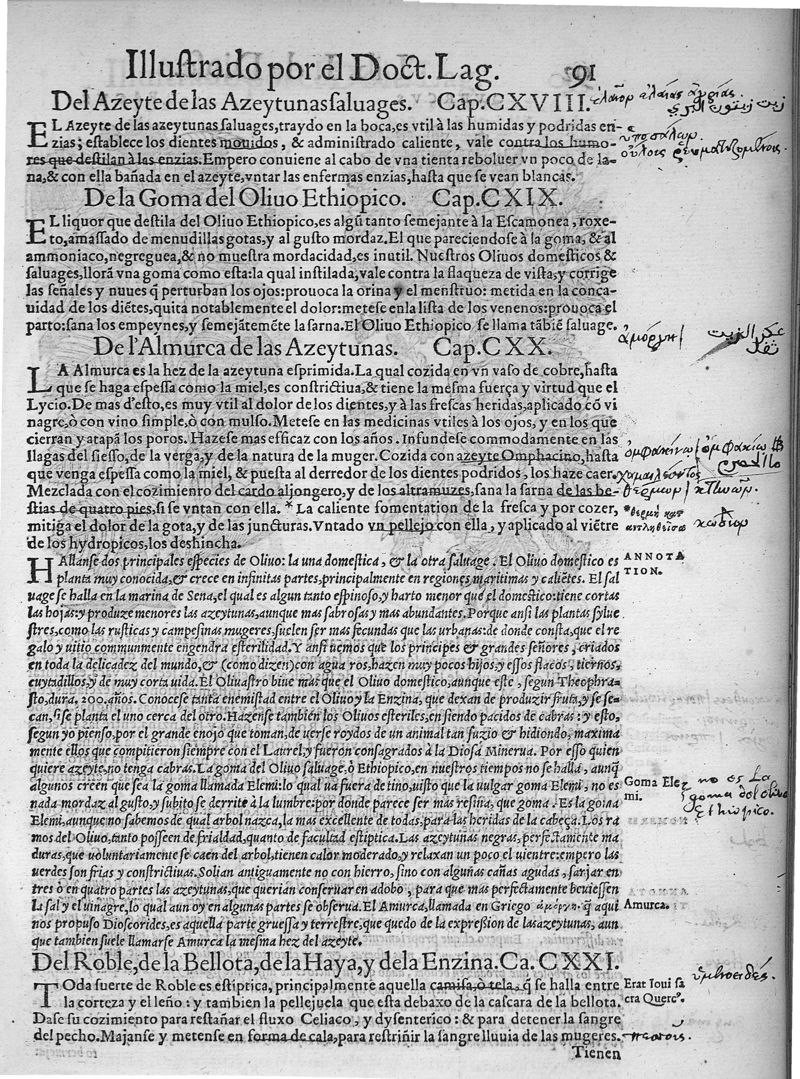 Illustrado por el Doct. Lag. 91
Del Azeyte de las Azeytunas saluages. Cap. CXVIII.
EL Azeyte de las azeytunas saluages, traydo en la boca, es vtil à las humidas y podridas en-
zias; establece los dientes mouidos, & administrado caliente, vale contra los humo-
res que destilan à las enzias. Empero conuiene al cabo de vna tienta reboluer vn poco de la-
na, & con ella bañada en el azeyte, vntar las enfermas enzias, hasta que se vean blancas.
De la Goma del Oliuo Ethiopico. Cap. CXIX.
EL liquor que destila del Oliuo Ethiopico, es algũ tanto semejante à la Escamonea, roxe-
to, amassado de menudillas gotas, y al gusto mordaz. El que pareciendose à la goma, & al
ammoniaco, negreguea, & no muestra mordacidad, es inutil. Nuestros Oliuos domesticos &
saluages, llorã vna goma como esta: la qual instilada, vale contra la flaqueza de vista, y corrige
las señales y nuues q̃ perturban los ojos: prouoca la orina y el menstruo: metida en la conca-
uidad de los diẽtes, quita notablemente el dolor: metese en la lista de los venenos: prouoca el
parto: sana los empeynes, y semejãtemẽte la sarna. El Oliuo Ethiopico se llama tãbiẽ saluage.
De l'Almurca de las Azeytunas. Cap. CXX.
LA Almurca es la hez de la azeytuna esprimida. La qual cozida en vn vaso de cobre, hasta
que se haga espessa como la miel, es constrictiua, & tiene la mesma fuerça y virtud que el
Lycio. De mas d'esto, es muy vtil al dolor de los dientes, y à las frescas heridas, aplicado cõ vi
nagre, ò con vino simple, ò con mulso. Metese en las medicinas vtiles à los ojos, y en los que
cierran y atapã los poros. Hazese mas efficaz con los años. Infundese commodamente en las
llagas del siesso, de la verga, y de la natura de la muger. Cozida con azeyte Omphacino, hasta
que venga espessa como la miel, & puesta al derredor de los dientes podridos, los haze caer.
Mezclada con el cozimiento del cardo aljongero, y de los altramuzes, sana la sarna de las be-
stias de quatro pies, si se vntan con ella. * La caliente fomentation de la fresca y por cozer,
mitiga el dolor de la gota, y de las juncturas. Vntado vn pellejo con ella, y aplicado al viẽtre
de los hydropicos, los deshincha.
HAllanse dos principales especies de Oliuo: la una domestica, & la otra saluage. El Oliuo domestico es
planta muy conocida, & crece en infinitas partes, principalmente en regiones maritimas y caliẽtes. El sal
uage se halla en la marina de Sena, el qual es algun tanto espinoso, y harto menor que el domestico: tiene cortas
las hojas: y produze menores las azeytunas, aunque mas sabrosas y mas abundantes. Porque ansi las plantas sylue
stres, como las rusticas y campesinas mugeres, suelen ser mas fecundas que las urbanas: de donde consta, que el re
galo y uitio communmente engendra esterilidad. Y ansi uemos que los principes & grandes señores, criados
en toda la delicadez del mundo, & (como dizen) con agua ros, hazen muy pocos hijos, y essos flacos, tiernos,
cuytadillos, y de muy corta uida. El Oliuastro biue mas que el Oliuo domestico, aunque este, segun Theophra-
sto, dura. 200. años. Conocese tanta enemistad entre el Oliuo y la Enzina, que dexan de produzir fruta, y se se-
can, si se planta el uno cerca del otro. Hazense tambien los Oliuos esteriles, en siendo pacidos de cabras: y esto,
segun yo pienso, por el grande enojo que toman, de uerse roydos de un animal tan suzio & hidiondo, maxima
mente ellos que compitieron siempre con el Laurel, y fueron consagrados à la Diosa Minerua. Por esso quien
quiere azeyte, no tenga cabras. La goma del Oliuo saluage, ò Ethiopico, en nuestros tiempos no se halla, aunq̃
algunos creen que sea la goma llamada Elemi: lo qual ua fuera de tino, uisto que la uulgar goma Elemi, no es
nada mordaz al gusto, y subito se derrite à la lumbre: por donde parece ser mas resina, que goma. Es la goma
Elemi, aunque no sabemos de qual arbol nazca, la mas excellente de todas, para las heridas de la cabeça. Los ra
mos del Oliuo, tanto posseen de frialdad, quanto de facultad estiptica. Las azeytunas negras, perfectamente ma
duras, que uoluntariamente se caen del arbol, tienen calor moderado, y relaxan un poco el uientre: empero las
uerdes son frias y constrictiuas. Solian antiguamente no con hierro, sino con algunas cañas agudas, sarjar en
tres ò en quatro partes las azeytunas, que querian conseruar en adobo, para que mas perfectamente beuiessen
la sal y el uinagre, lo qual aun oy en algunas partes se obserua. El Amurca, llamada en Griego ἀμόργη, q̃ aqui
nos propuso Dioscorides, es aquella parte gruessa y terrestre, que quedo de la expression de las azeytunas, aun
que tambien suele llamarse Amurca la mesma hez del azeyte.
Del Roble, de la Bellota, de la Haya, y de la Enzina. Ca. CXXI.
TOda suerte de Roble es estiptica, principalmente aquella camisa, ò tela, q̃ se halla entre
la corteza y el leño: y tambien la pellejuela que esta debaxo de la cascara de la bellota.
Dase su cozimiento para restañar el fluxo Celiaco, y dysenterico: & para detener la sangre
del pecho. Majanse y metense en forma de cala, para restriñir la sangre lluuia de las mugeres.
Tienen
ἔλαιον ἐλαίας ἀγρίας.
زيت زيتون البري
οὔλοις ῥευματιζομένοις.
ἀμόργη
عكر الزيت
ثفل
χαμαιλέοντος
θέρμων
κώδιον
ANNOTA
TION.
Goma Ele
mi.
no es La
goma del olivo
ethiopico.
Amurca.
ὑμενοειδές.
Erat Ioui sa
cra Querc⁹.
πεσσοῖς.